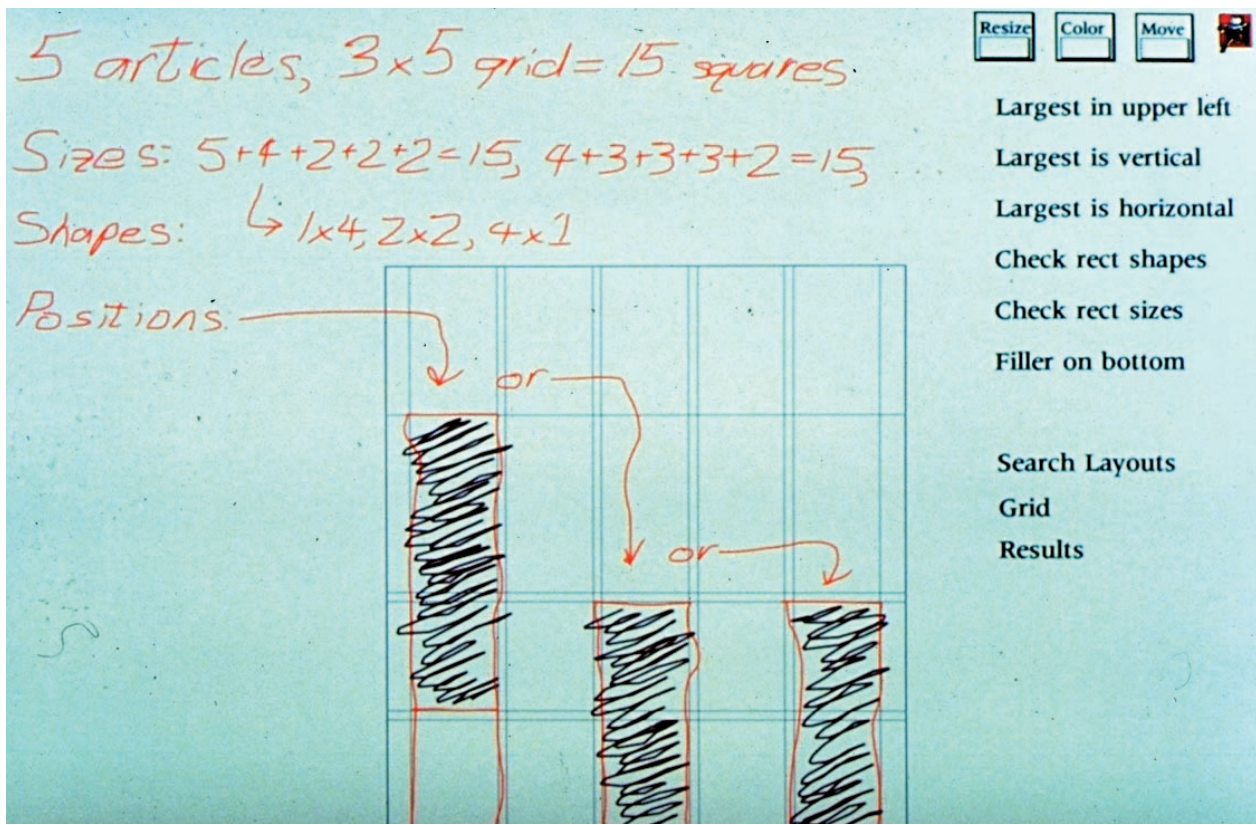 5 articles, 3x5 grid = 15 squares
Sizes: 5+4+2+2+2=15, 4+3+3+3+2=15,
Shapes: ↳ 1x4, 2x2, 4x1
Positions.
or
or
Resize
Color
Move
Largest in upper left
Largest is vertical
Largest is horizontal
Check rect shapes
Check rect sizes
Filler on bottom
Search Layouts
Grid
Results